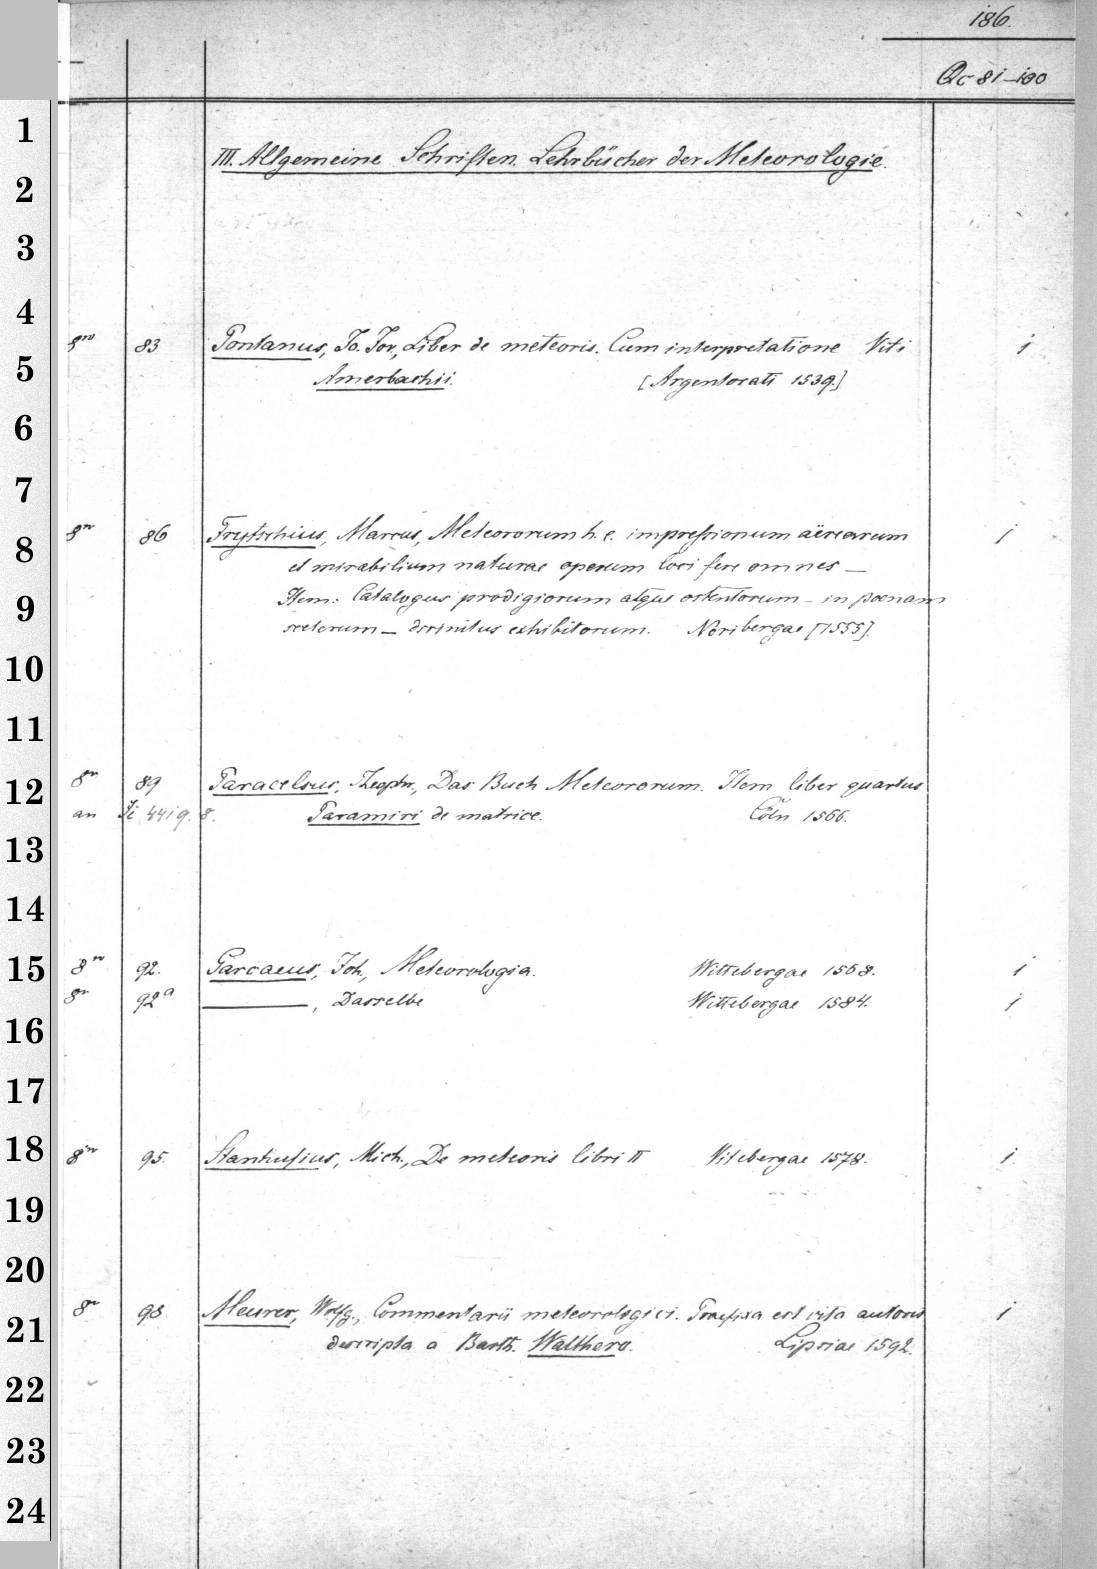 186.
Qc 81-100
III. Allgemeine Schriften. Lehrbücher der Meteorologie.
8vo 83 Pontanus, Jo. Jov., Liber de meteoris. Cum interpretatione Viti 1
Amerbachii. [Argentorati 1539.]
8vo 86 Frytschius, Marcus, Meteororum h. e. impressionum aërearum 1
et mirabilium naturae operum loci fere omnes —
Item: Catalogus prodigiorum atque ostentorum – in poenam
scelerum — divinitus exhibitorum. Noribergae [1555].
8vo 89 Paracelsus, Theophr., Das Buch Meteororum. Item liber quartus
an Ji 4419. 8. Paramiri de matrice. Cöln 1566.
8vo 92. Garcaeus, Joh., Meteorologia. Wittebergae 1568. 1
8vo 92a ———, Dasselbe Wittebergae 1584. 1
8vo 95. Stanhufius, Mich., De meteoris libri II Vitebergae 1578. 1
8vo 98 Meurer, Wolfg., Commentarii meteorologici. Praefixa est vita autoris 1
descripta a Barth. Walthero. Lipsiae 1592.
1
2
3
4
5
6
7
8
9
10
11
12
13
14
15
16
17
18
19
20
21
22
23
24